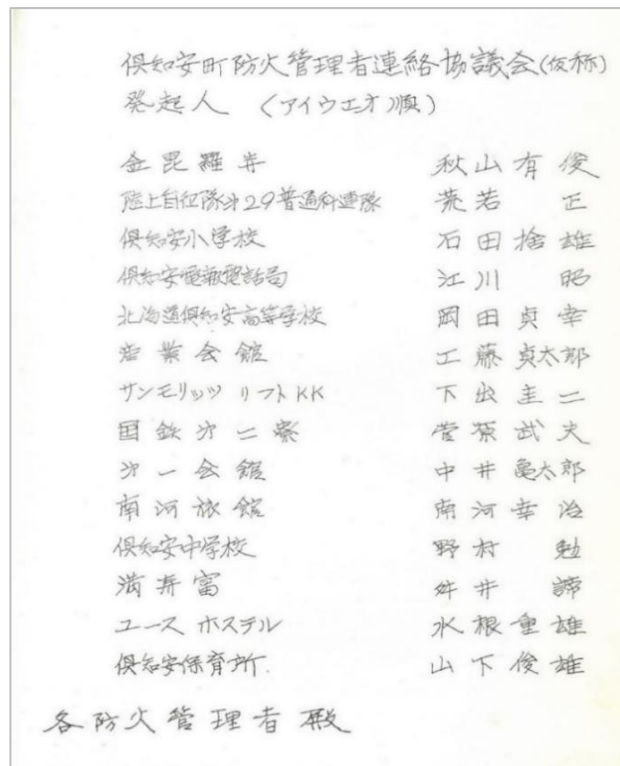 倶知安町防火管理者連絡協議会(仮称)
発起人 (アイウエオ順)
金毘羅寺 秋山有俊
陸上自衛隊第29普通科連隊 荒若 正
倶知安小学校 石田捨雄
倶知安電報電話局 江川 昭
北海道倶知安高等学校 岡田貞幸
産業会館 工藤貞太郎
サンモリッツ リフトKK 下出圭二
国鉄第二寮 菅原武夫
第一会館 中井亀太郎
南河旅館 南河幸治
倶知安中学校 野村 勉
満寿富 舛井 諦
ユース ホステル 水根重雄
倶知安保育所. 山下俊雄
各防火管理者 殿